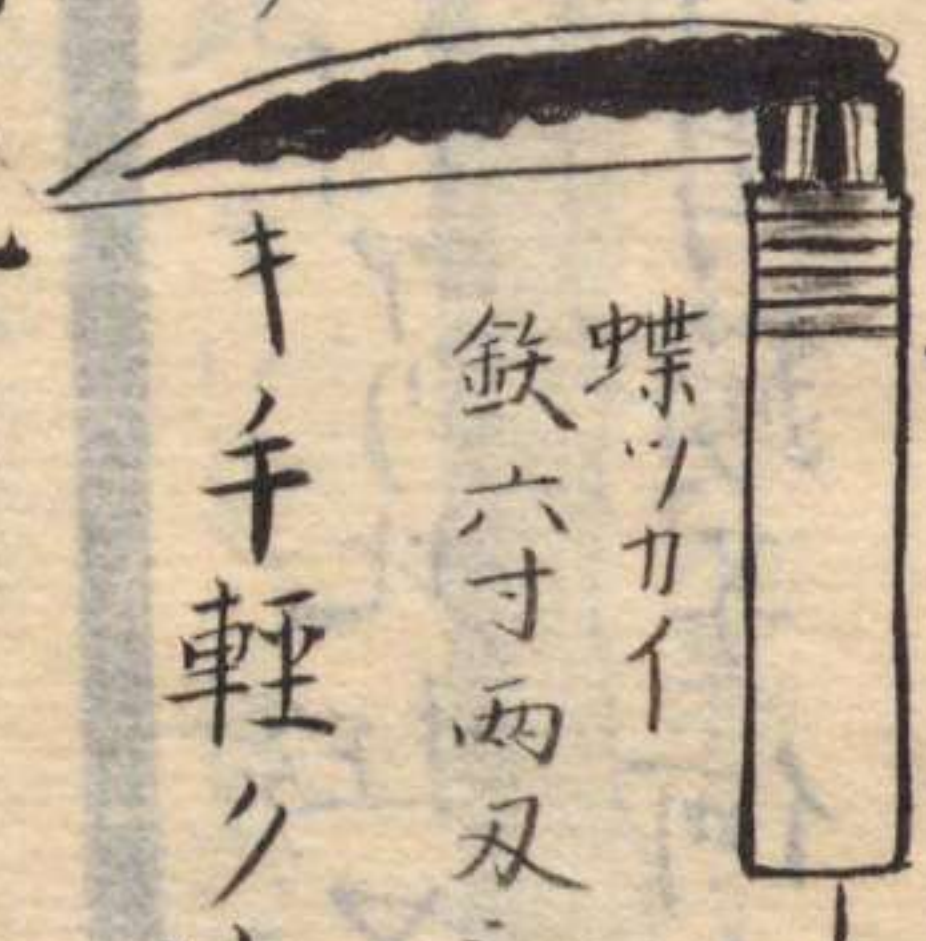 蝶ツカイ
鉄六寸両刄
キ手軽ク